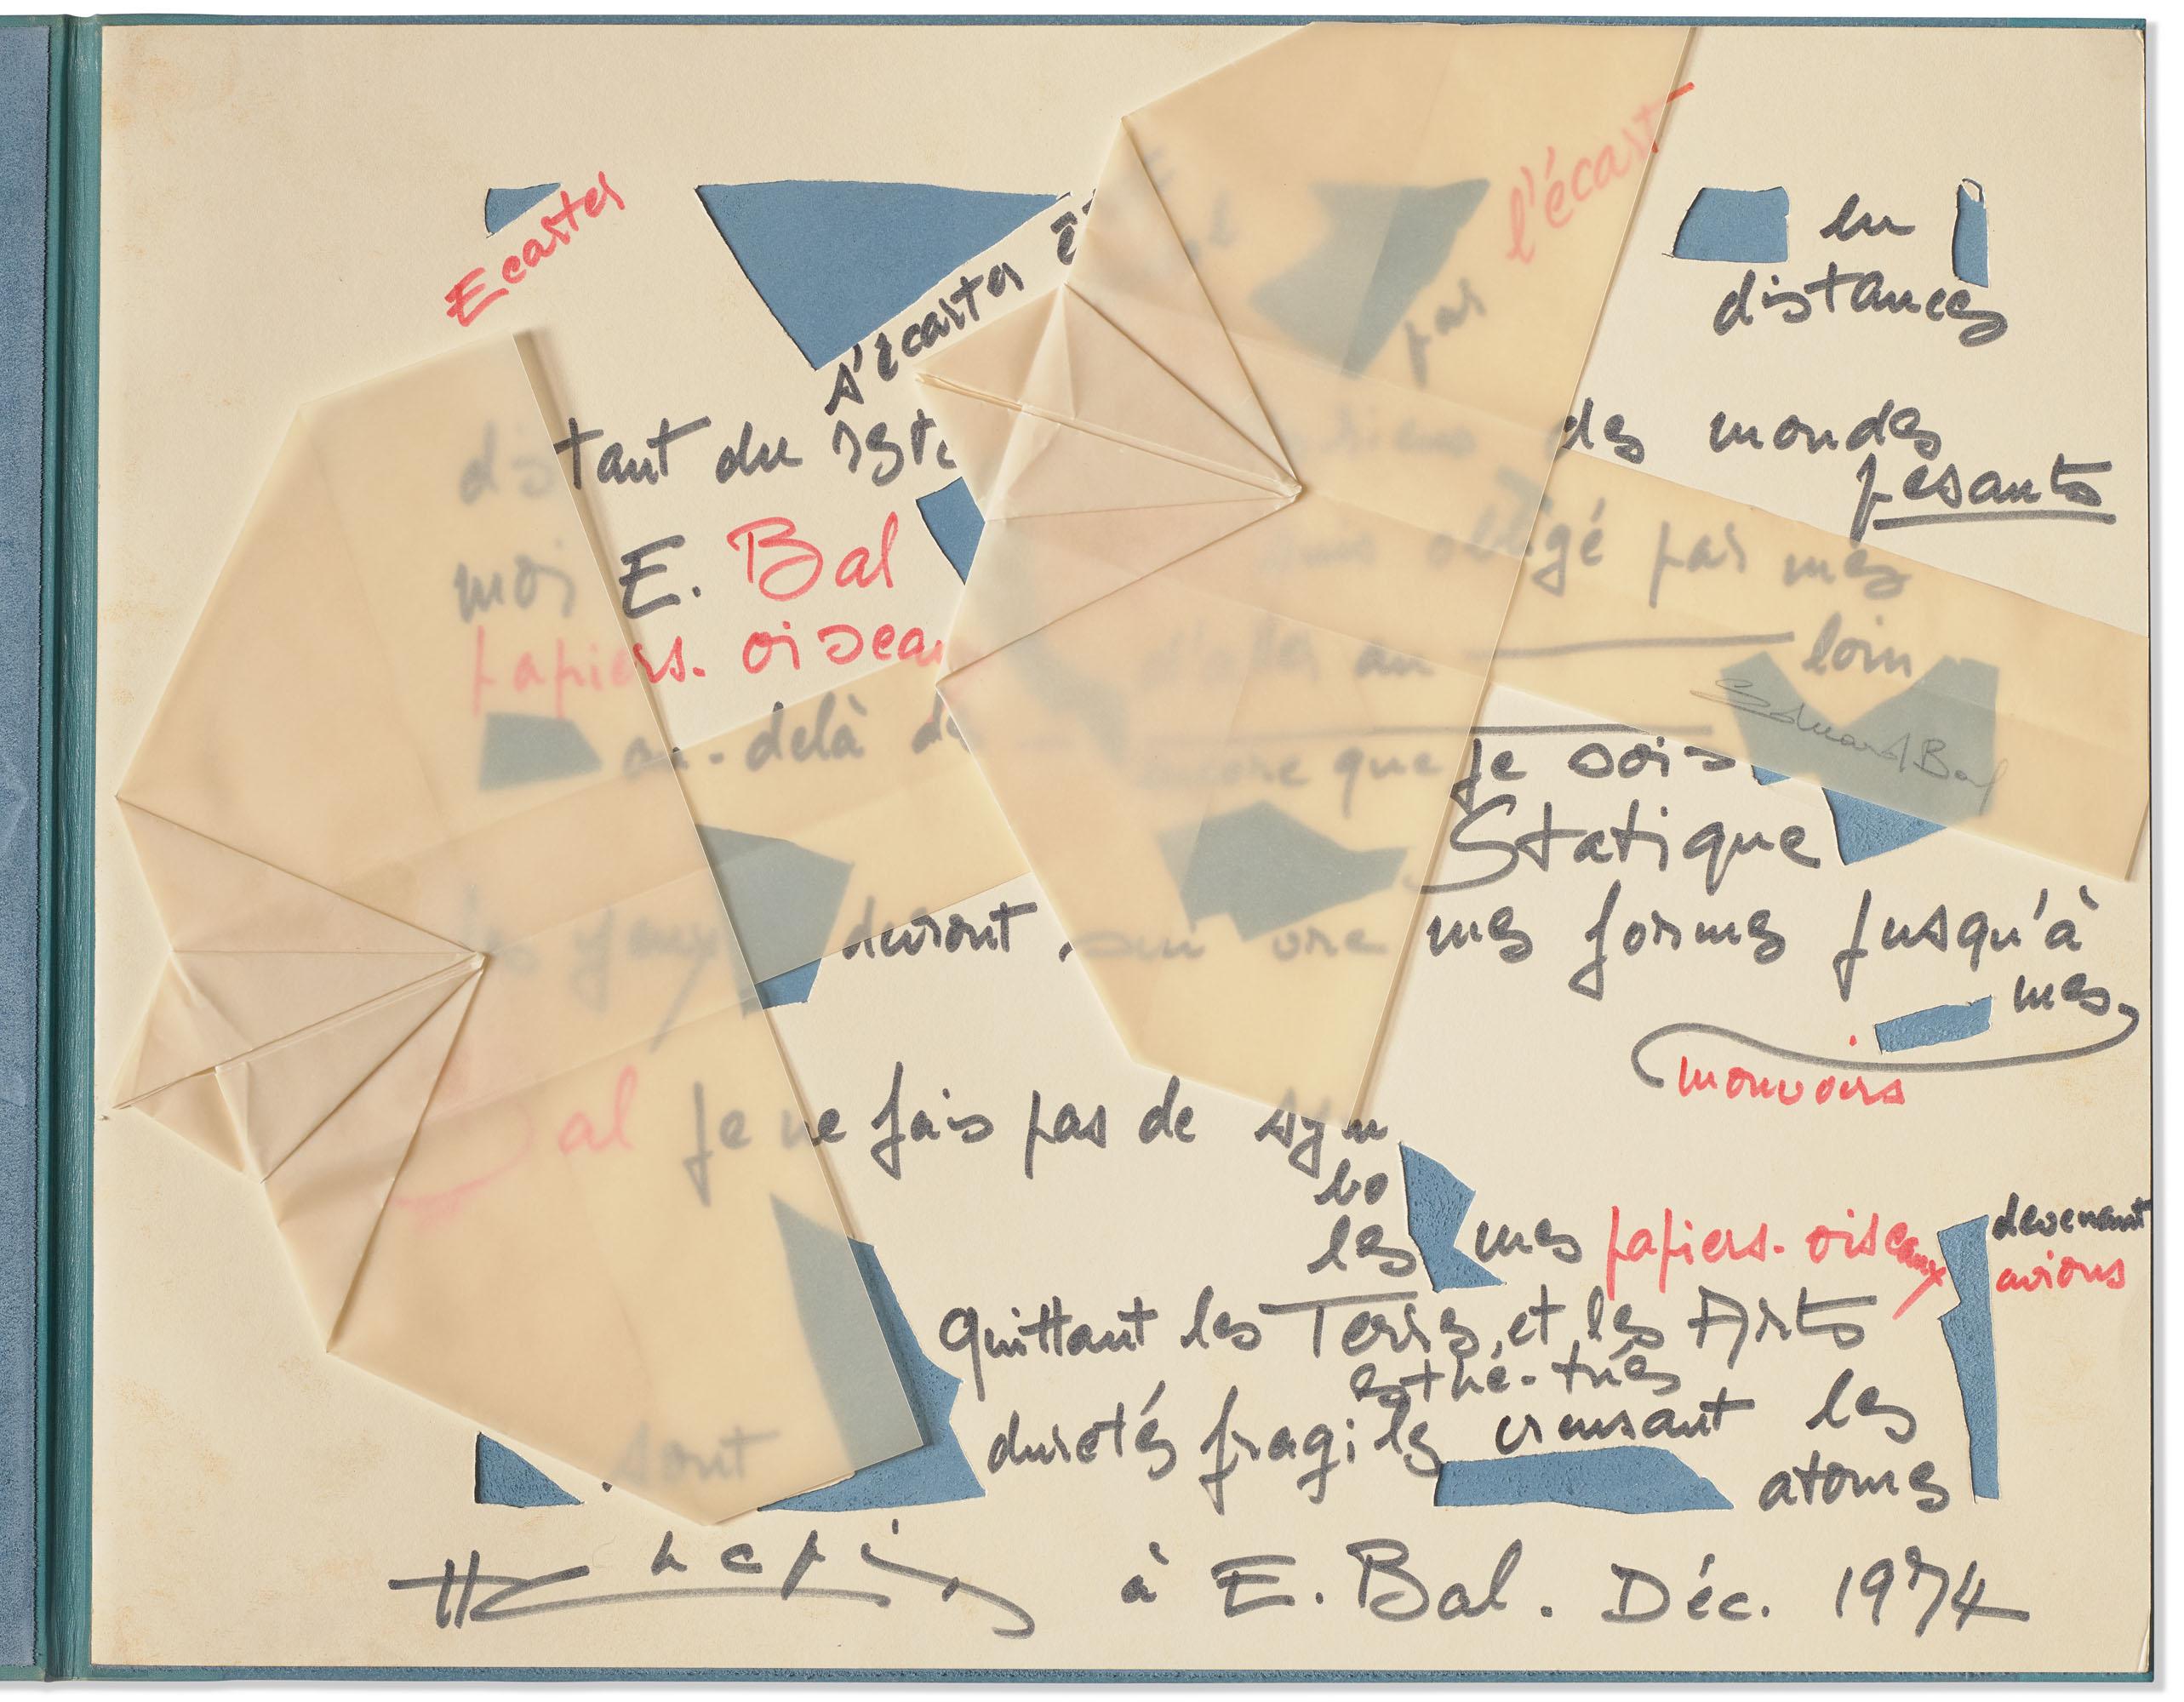 Ecarter
s'écarter
par l'écart
en
distances
distant du reste
des mondes
pesants
moi E. Bal
obligé par mes
papiers-oiseau
au loin
Eduard Bal
au-delà de
encore que je sois
Statique
les yeux durront.
mes formes jusqu'à
mes
mouvoirs
Bal je ne fais pas de sym
bo
les mes papiers-oiseaux devenant
avions
quittant les Terres et les Arts
esthé-tués
sont duretés fragiles creusant les
atomes
à E. Bal. Déc. 1974